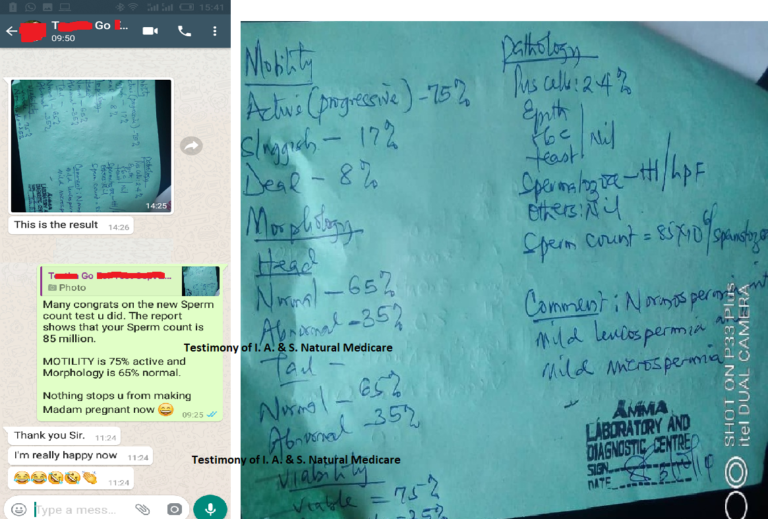 15:41
T Go
09:50
14:25
This is the result 14:26
T Go
Photo
Many congrats on the new Sperm
count test u did. The report
shows that your Sperm count is
85 million.
MOTILITY is 75% active and
Morphology is 65% normal.
Nothing stops u from making
Madam pregnant now 😄
09:25
Thank you Sir. 11:24
I'm really happy now 11:24
😂😂🤣🤣👏 11:24
Type a mess...
Mobility
Active (progressive) - 75%
Sluggish - 17%
Dead - 8%
Morphology
Head
Normal - 65%
Abnormal - 35%
Tail -
Normal - 65%
Abnormal - 35%
Viability
Viable = 75%
Pathology
Pus cells: 2-4 %
Epith
Yeast
Nil
Spermatozoa - +++ / HPF
Others: Nil
Sperm count = 85X10^6/spermatozoa
Comment: Normospermia
mild leucospermia
mild microspermia
AMMA
LABORATORY AND
DIAGNOSTIC CENTRE
SIGN
DATE
SHOT ON P33 Plus
itel DUAL CAMERA
Testimony of I. A. & S. Natural Medicare
Testimony of I. A. & S. Natural Medicare